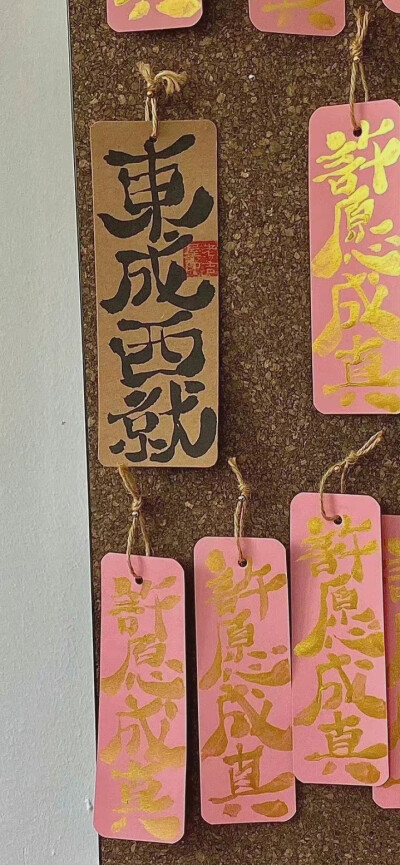 東成西就
許愿成真
許愿成真
許愿成真
許愿成真